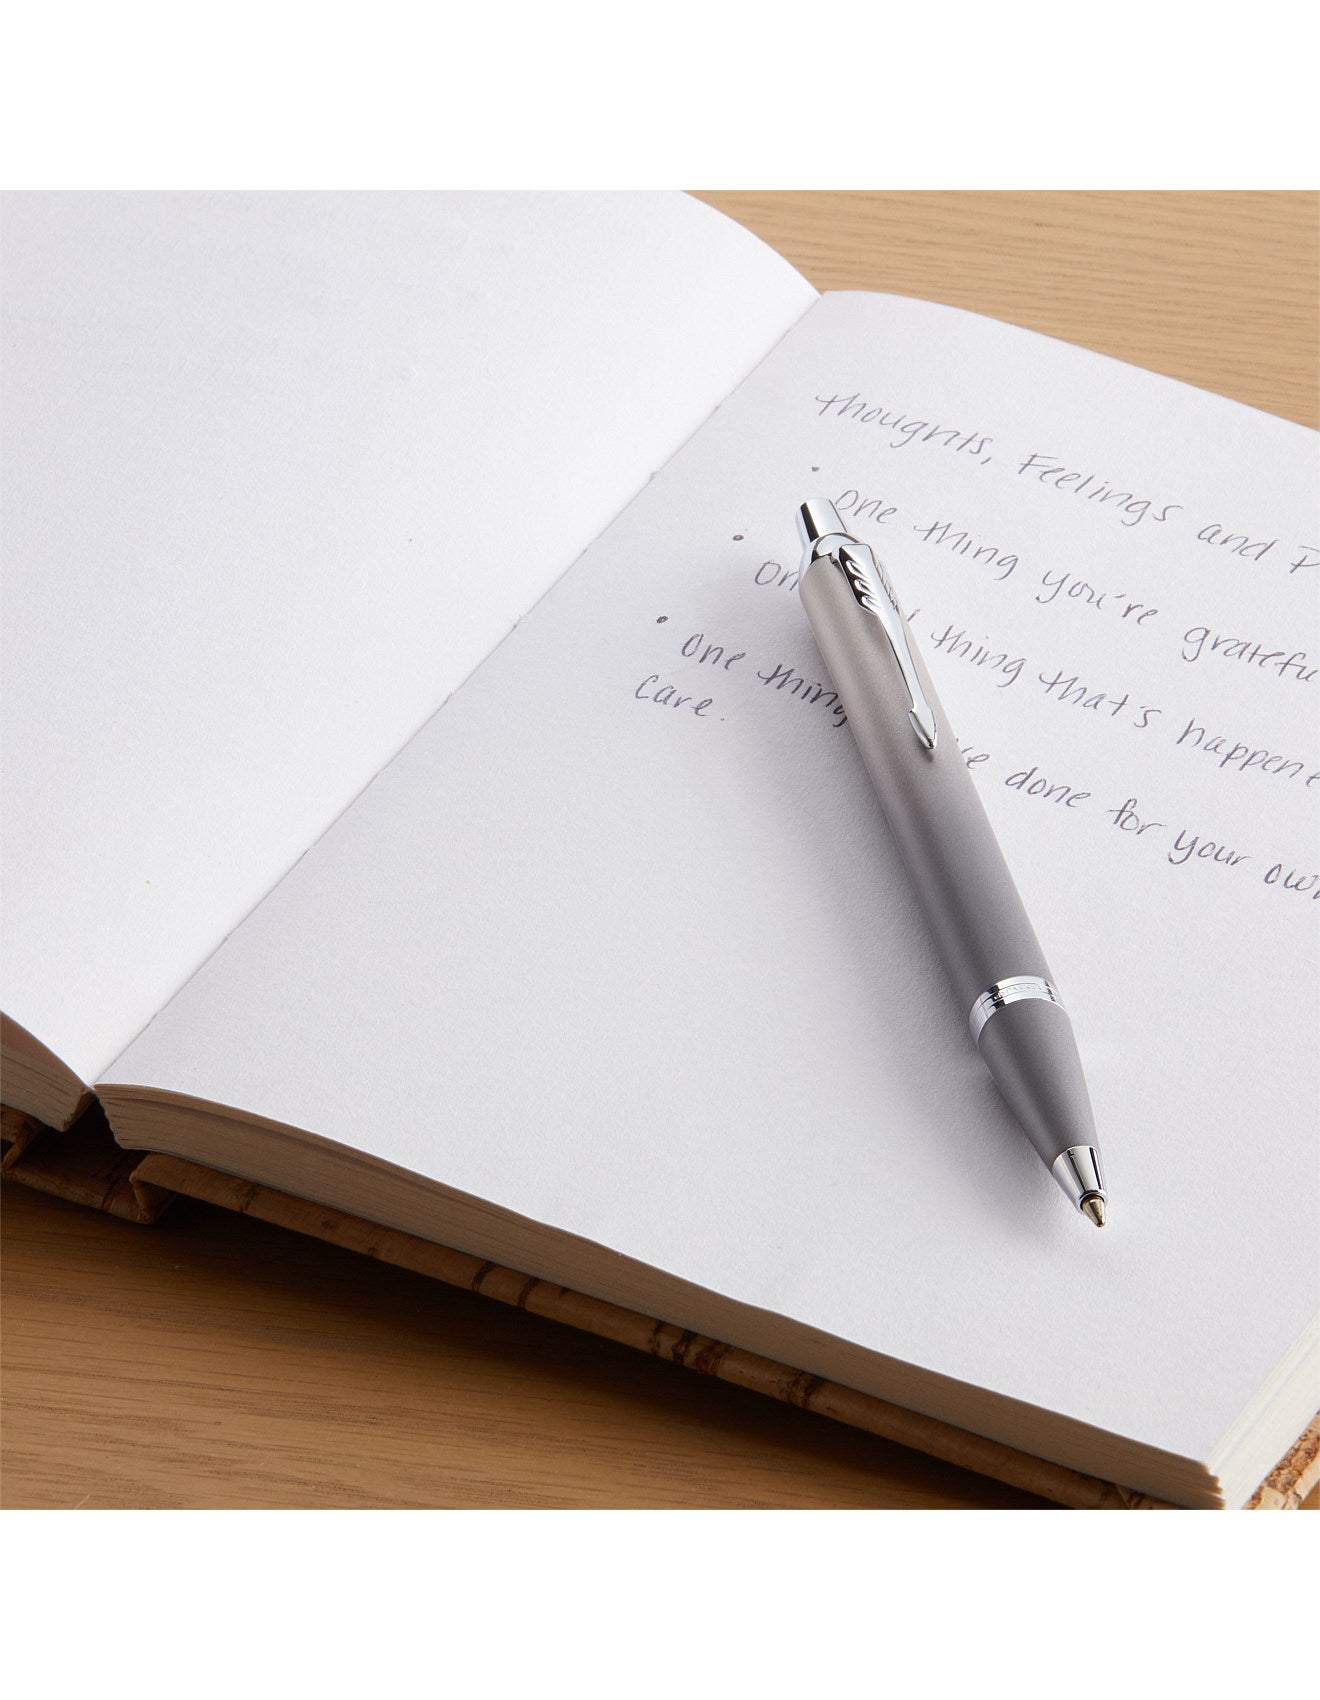 thoughts, Feelings and P
• one thing you're gratefu
• thing that's happene
• one thing done for your own
care.